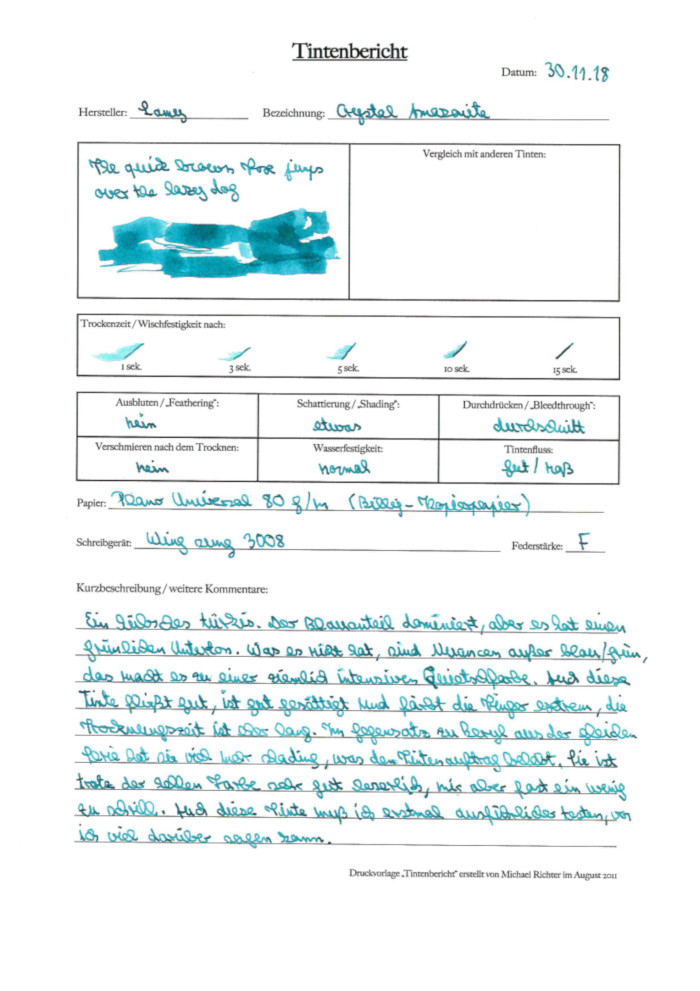 Tintenbericht
Datum: 30.11.18
Hersteller: Lamy Bezeichnung: Crystal Amazonite
The quick brown fox jumps
over the lazy dog
Vergleich mit anderen Tinten:
Trockenzeit / Wischfestigkeit nach:
1 sek. 3 sek. 5 sek. 10 sek. 15 sek.
Ausbluten / „Feathering“: Schattierung / „Shading“: Durchdrücken / „Bleedthrough“:
nein etwas durchschnitt
Verschmieren nach dem Trocknen: Wasserfestigkeit: Tintenfluss:
nein normal gut / naß
Papier: Plano Universal 80 g/m (Billig-Kopierpapier)
Schreibgerät: Wing sung 3008 Federstärke: F
Kurzbeschreibung / weitere Kommentare:
Ein hübsches türkis. Der Blauanteil dominiert, aber es hat einen
grünlichen Unterton. Was es nicht hat, sind Nuancen außer blau/grün,
das macht es zu einer ziemlich intensiven Quietschfarbe. Auch diese
Tinte fließt gut, ist gut gesättigt und färbt die Finger extrem, die
Trocknungszeit ist aber lang. Im gegensatz zu Beryl aus der gleichen
Serie hat sie viel mehr shading, was den Tintenauftrag belebt. Sie ist
trotz der hellen Farbe sehr gut leserlich, mir aber fast ein wenig
zu schrill. Auch diese Tinte muß ich erstmal ausführlicher testen, vor
ich viel darüber sagen kann.
Druckvorlage „Tintenbericht“ erstellt von Michael Richter im August 2011